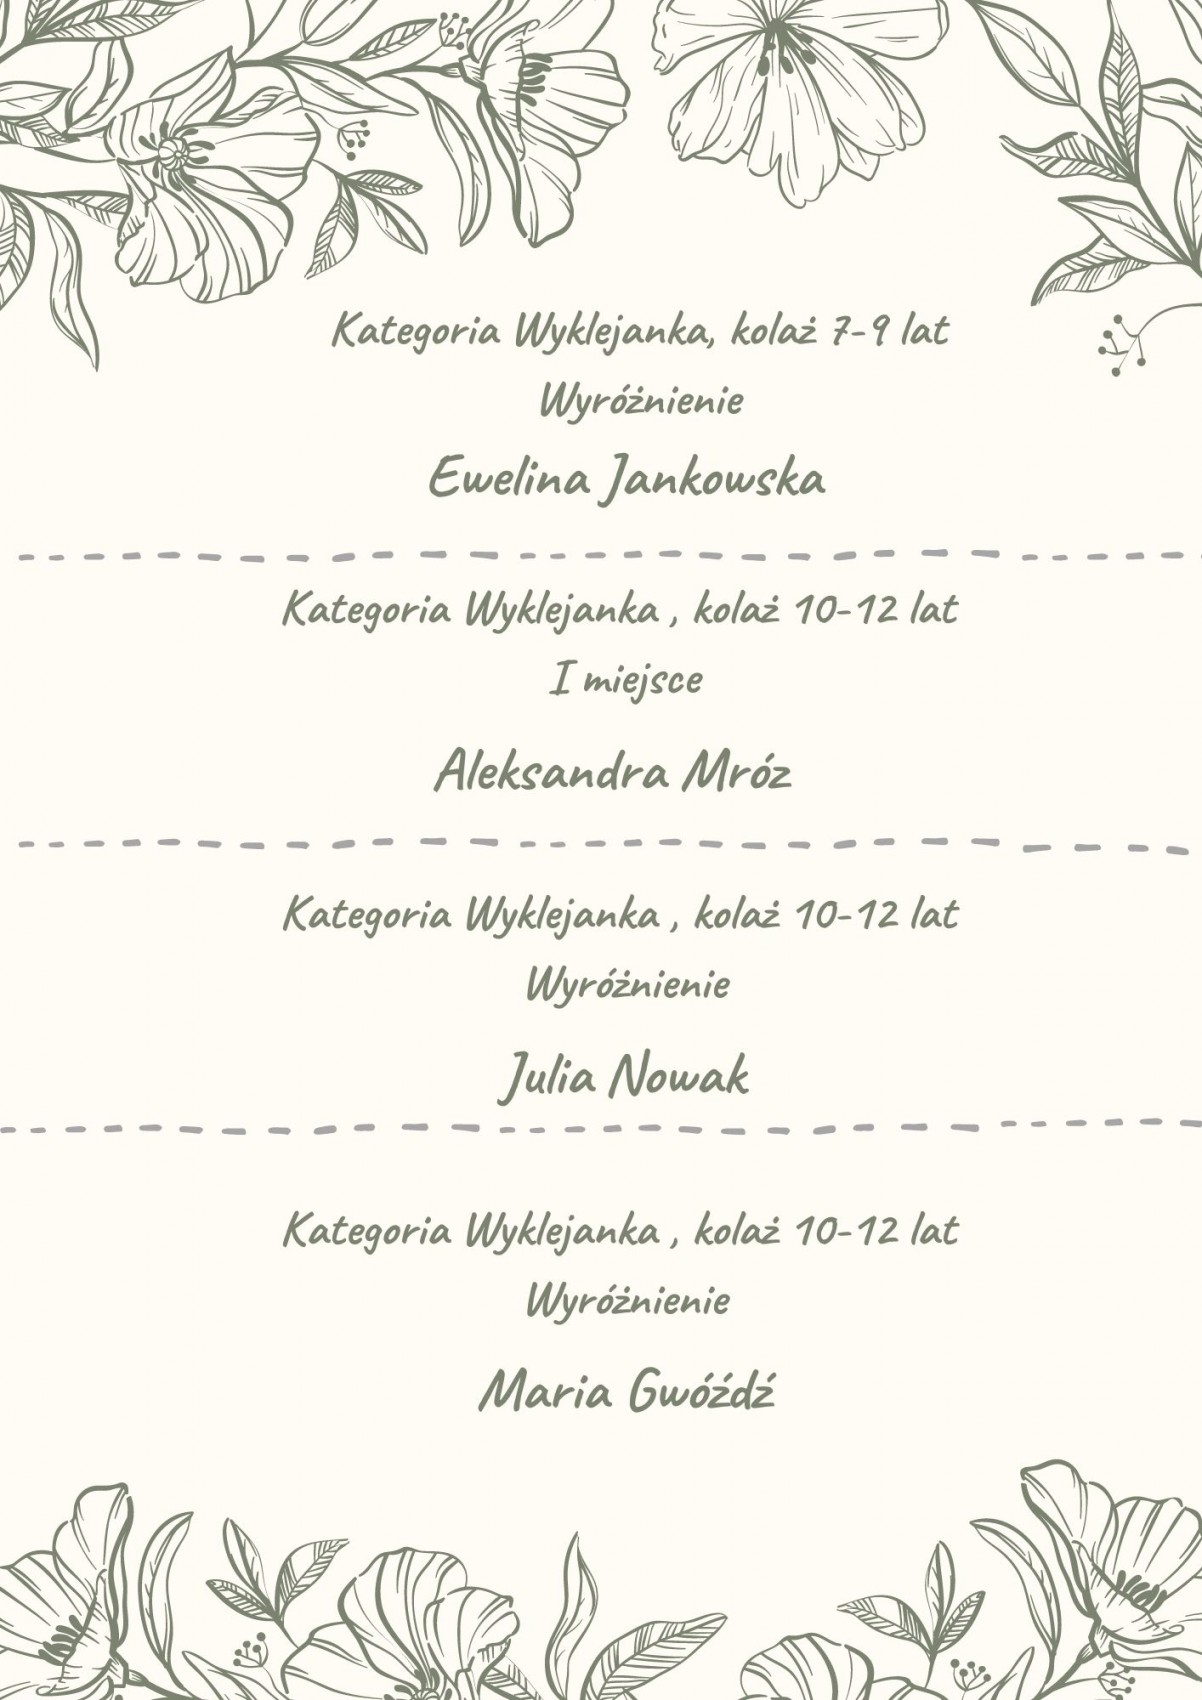 Kategoria Wyklejanka, kolaż 7-9 lat
Wyróżnienie
Ewelina Jankowska
Kategoria Wyklejanka , kolaż 10-12 lat
I miejsce
Aleksandra Mróz
Kategoria Wyklejanka , kolaż 10-12 lat
Wyróżnienie
Julia Nowak
Kategoria Wyklejanka , kolaż 10-12 lat
Wyróżnienie
Maria Gwóźdź